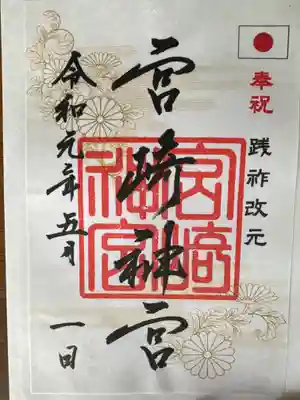 奉祝
践祚改元
宮崎神宮
宮崎神宮
令和元年五月
一日